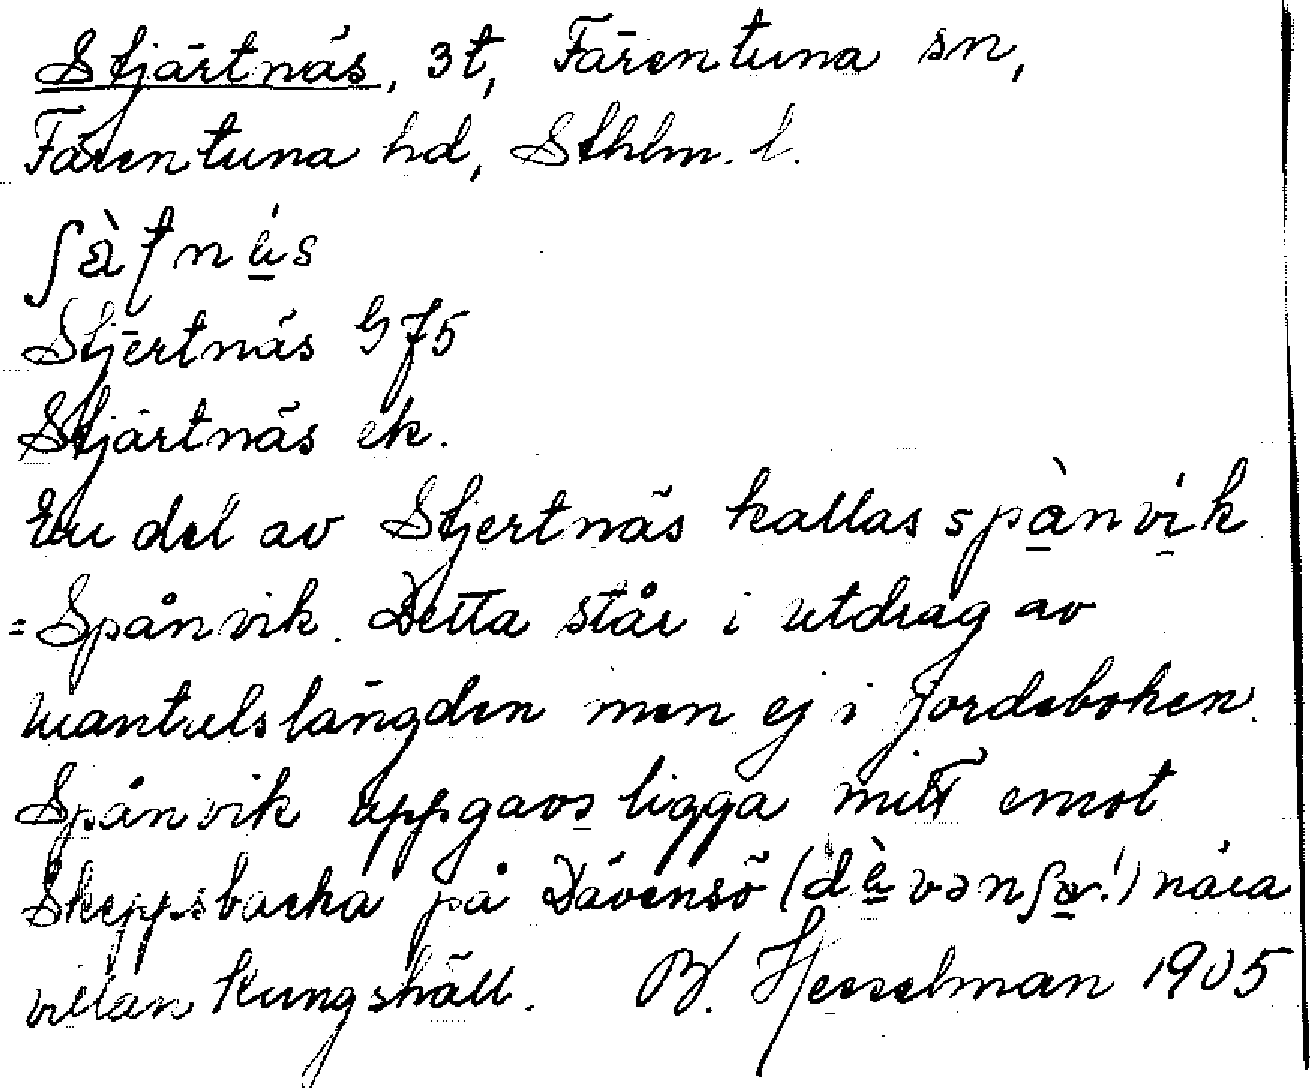 Stjärtnäs, 3t, Färentuna sn,
Färentuna hd, Sthlm. l.
Stjertnäs GJ5
Stjärtnäs ek.
En del av Stjertnäs kallas spànvík
= Spånvik. Detta står i utdrag av
mantalslängden men ej i Jordeboken.
Spånvik uppgavs ligga mitt emot
Skeppsbacka på Dävensö nära
villan Kungshäll. B. Hesselman 1905